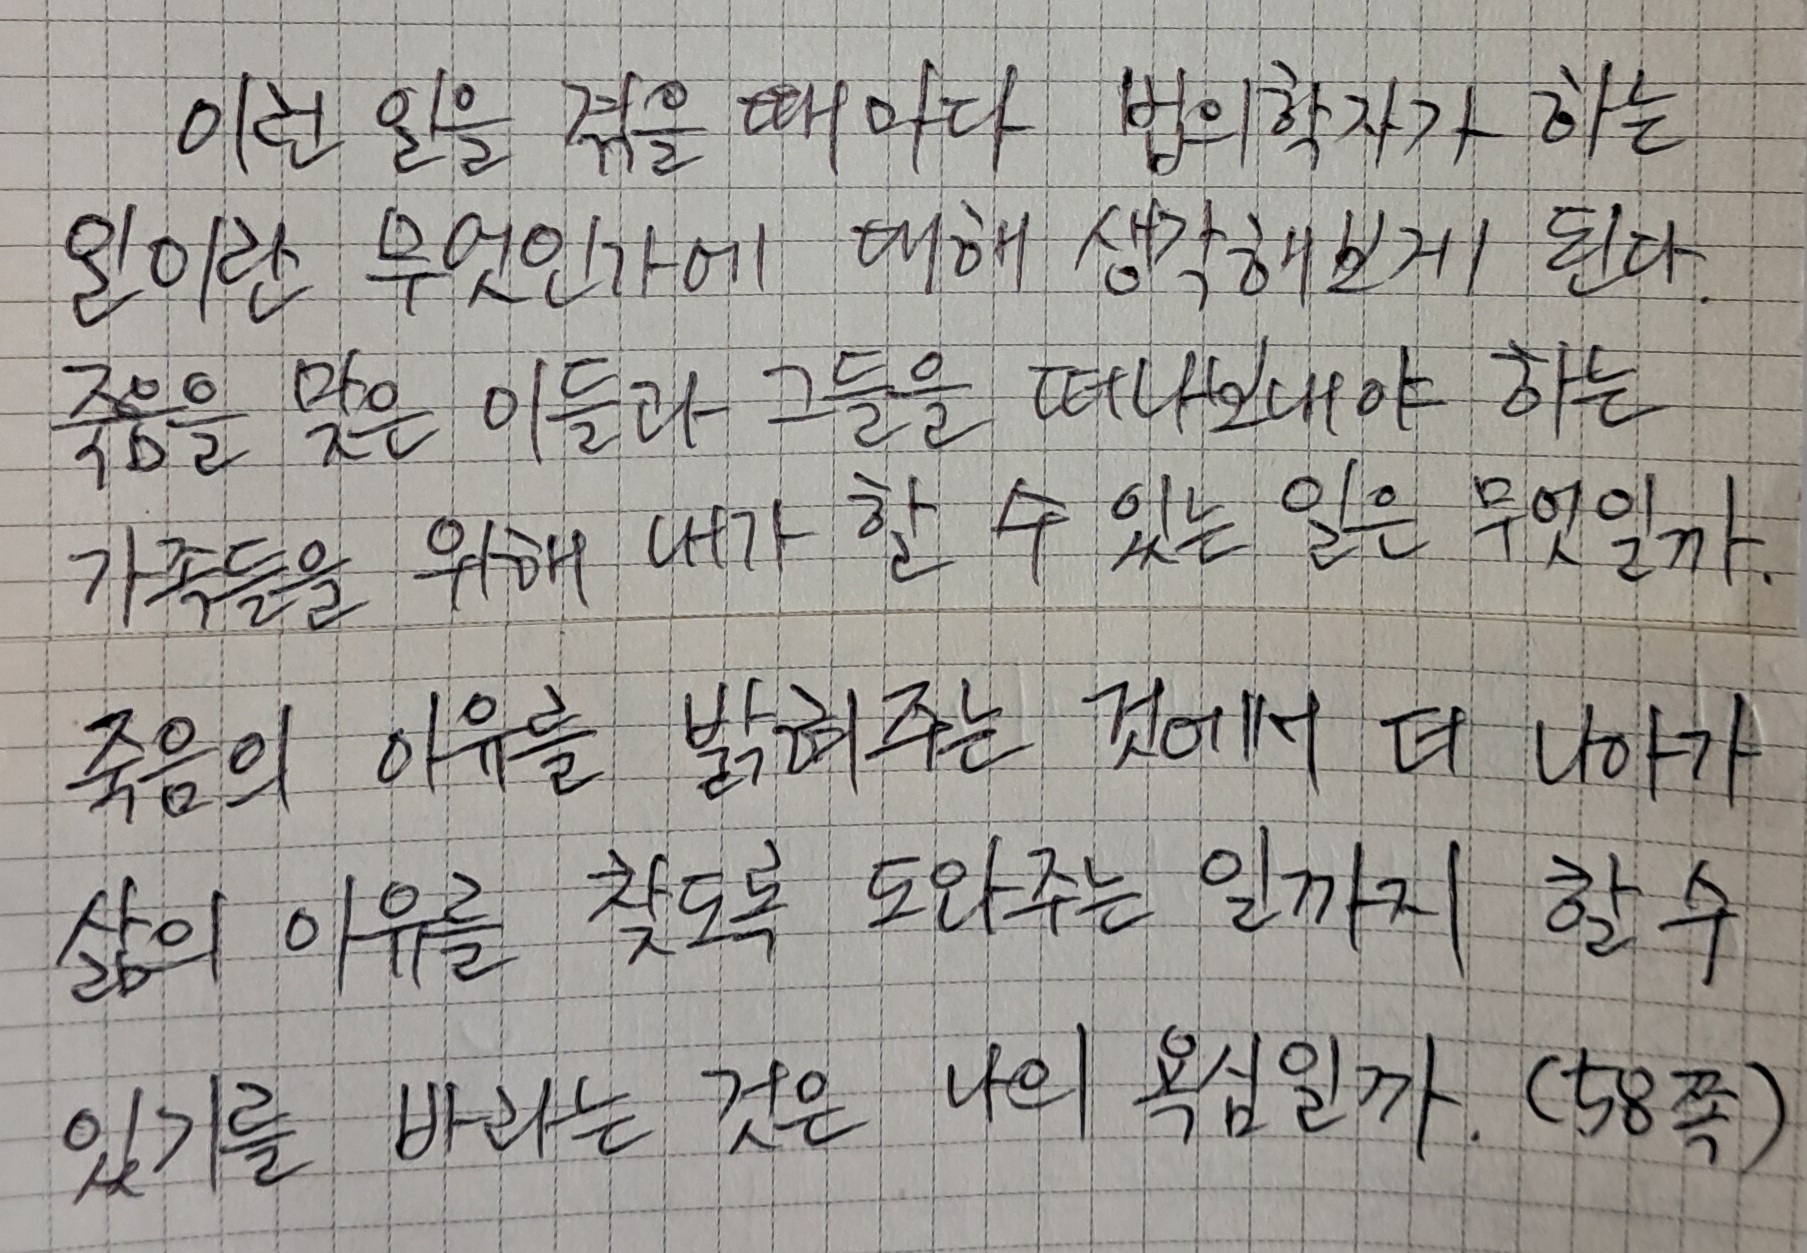 이런 일을 겪을 때마다 법의학자가 하는
일이란 무엇인가에 대해 생각해보게 된다.
죽음을 맞은 이들과 그들을 떠나보내야 하는
가족들을 위해 내가 할 수 있는 일은 무엇일까.
죽음의 이유를 밝혀주는 것에서 더 나아가
삶의 이유를 찾도록 도와주는 일까지 할 수
있기를 바라는 것은 나의 욕심일까. (58쪽)